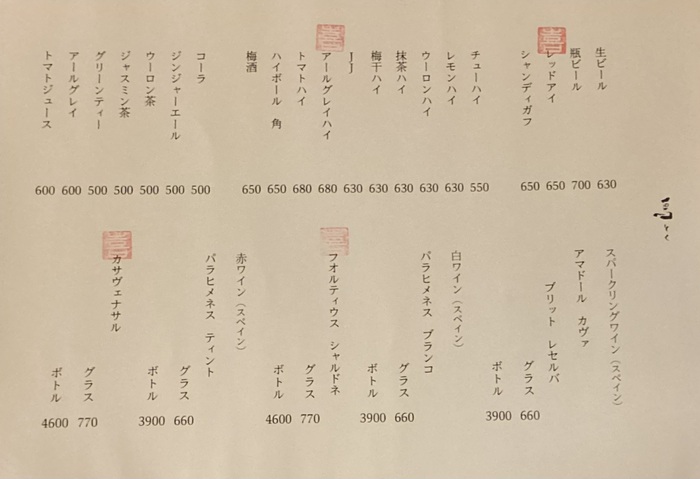 生ビール 630
瓶ビール 700
レッドアイ 650
シャンディガフ 650
チューハイ 550
レモンハイ 630
ウーロンハイ 630
抹茶ハイ 630
梅干ハイ 630
JJ 630
アールグレイハイ 680
トマトハイ 680
ハイボール 角 650
梅酒 650
コーラ 500
ジンジャーエール 500
ウーロン茶 500
ジャスミン茶 500
グリーンティー 500
アールグレイ 600
トマトジュース 600
スパークリングワイン（スペイン）
アマドール カヴァ
ブリット レセルバ
グラス 660
ボトル 3900
白ワイン（スペイン）
パラヒメネス ブランコ
グラス 660
ボトル 3900
フオルティウス シャルドネ
グラス 770
ボトル 4600
赤ワイン（スペイン）
パラヒメネス ティント
グラス 660
ボトル 3900
カサヴェナサル
グラス 770
ボトル 4600